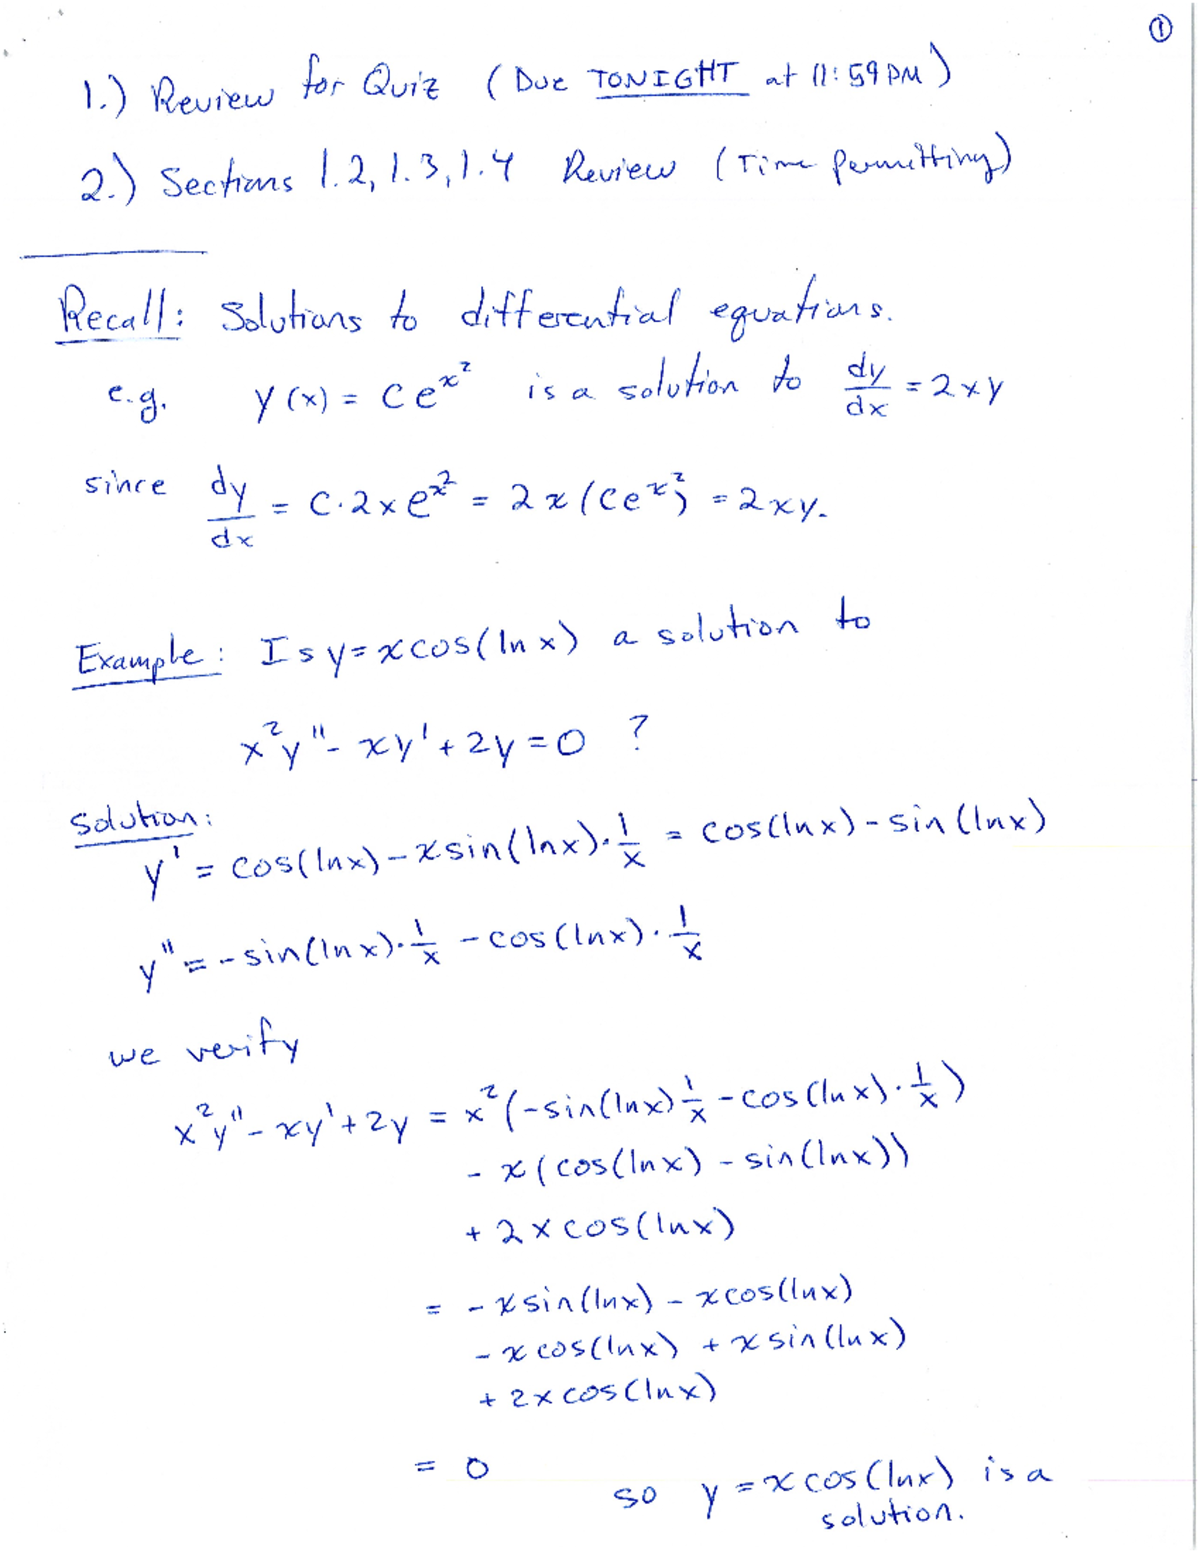 ①
1.) Review for Quiz (Due TONIGHT at 11:59 PM)
2.) Sections 1.2, 1.3, 1.4 Review (Time Permitting)
Recall: Solutions to differential equations.
e.g. y(x) = Ce^{x^2} is a solution to dy/dx = 2xy
since dy/dx = C·2xe^{x^2} = 2x(Ce^{x^2}) = 2xy.
Example: Is y=xcos(ln x) a solution to
x²y''- xy'+2y=0 ?
Solution:
y' = cos(lnx)-xsin(lnx)·1/x = cos(lnx)-sin(lnx)
y''=-sin(lnx)·1/x -cos(lnx)·1/x
we verify
x²y''-xy'+2y = x²(-sin(lnx)1/x -cos(lnx)·1/x)
- x(cos(lnx) - sin(lnx))
+ 2xcos(lnx)
= -xsin(lnx) - xcos(lnx)
- xcos(lnx) + xsin(lnx)
+ 2xcos(lnx)
= 0
so y=xcos(lnx) is a
solution.